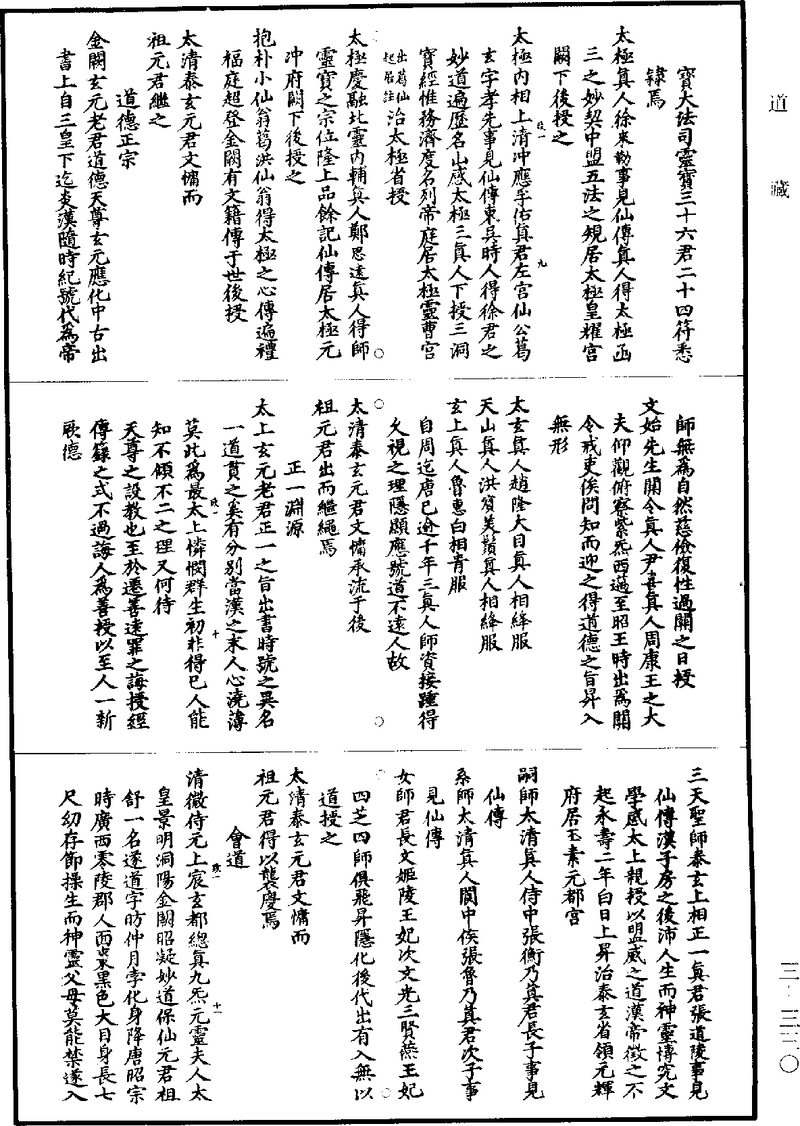 道藏
寶大法司靈寶三十六君二十四符悉
隸焉
太極真人徐來勒事見仙傳真人得太極函
三之妙契中盟五法之規居太極皇耀宮
闕下後授之
太極內相上清冲應孚佑真君左宮仙公葛
玄字孝先事見仙傳東吳時人得徐君之
妙道遍歷名山感太極三真人下授三洞
寶經惟務濟度名列帝庭居太極靈曹宮
出葛仙起居註治太極省授
太極慶融北靈內輔真人鄭思遠真人得師
靈寶之宗位隆上品餘記仙傳居太極元
冲府闕下後授之
抱朴小仙翁葛洪仙翁得太極之心傳遍禮
福庭超登金闕有文籍傳于世後授
太清泰玄元君文慵而
祖元君繼之
道德正宗
金闕玄元老君道德天尊玄元應化中古出
書上自三皇下迄炎漢隨時紀號代為帝
師無為自然慈儉復性過關之日授
文始先生關令真人尹喜真人周康王之大
夫仰觀俯察紫炁西邁至昭王時出為關
令戒吏俟問知而迎之得道德之旨昇入
無形
太玄真人趙隆大目真人相絳服
天山真人洪寶美鬚真人相絳服
玄上真人魯惠白相青服
自周迄唐已逾千年三真人師資接踵得
久視之理隱顯應號道不遠人故
太清泰玄元君文慵承流于後
祖元君出而繼繩焉
正一淵源
太上玄元老君正一之旨出書時號之異名
一道貫之奚有分別當漢之末人心澆薄
莫此為最太上憐憫群生初非得已人能
知不傾不二之理又何待
天尊之設教也至於遷善遠罪之誨授經
傳籙之式不過誨人為善授以至人一新
厥德
三天聖師泰玄上相正一真君張道陵事見
仙傳漢子房之後沛人生而神靈博究文
學感太上親授以盟威之道漢帝徵之不
起永壽二年白日上昇治泰玄省領元輝
府居玉素元都宮
嗣師太清真人侍中張衡乃真君長子事見
仙傳
系師太清真人閬中侯張魯乃真君次子事
見仙傳
女師君長文姬陵王妃次文光三賢燕王妃
四芝四師俱飛昇隱化後代出有入無以
道授之
太清泰玄元君文慵而
祖元君得以襲慶焉
會道
清微侍元上宸玄都總真九炁元靈夫人太
皇景明洞陽金闕昭凝妙道保仙元君祖
舒一名遂道字昉仲月孛化身降唐昭宗
時廣西零陵郡人面東黑色大目身長七
尺幼存節操生而神靈父母莫能禁遂入
三-三三〇